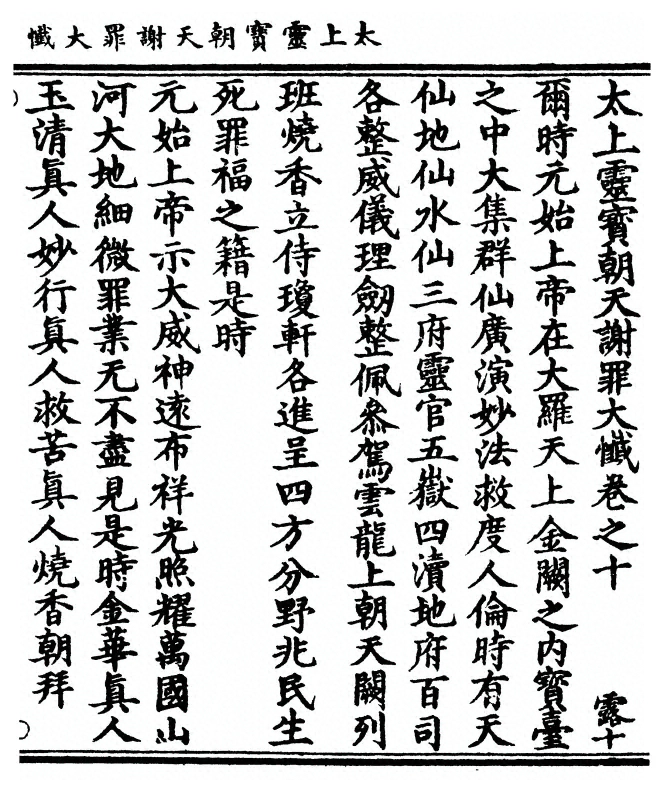 太上靈寶朝天謝罪大懺
太上靈寶朝天謝罪大懺卷之十
露十
爾時元始上帝在大羅天上金闕之內寶臺
之中大集群仙廣演妙法救度人倫時有天
仙地仙水仙三府靈官五嶽四瀆地府百司
各整威儀理劒整佩叅駕雲龍上朝天闕列
班燒香立侍瓊軒各進呈四方分野兆民生
死罪福之籍是時
元始上帝示大威神遠布祥光照耀萬國山
河大地細微罪業无不盡見是時金華眞人
玉清眞人妙行眞人救苦眞人燒香朝拜